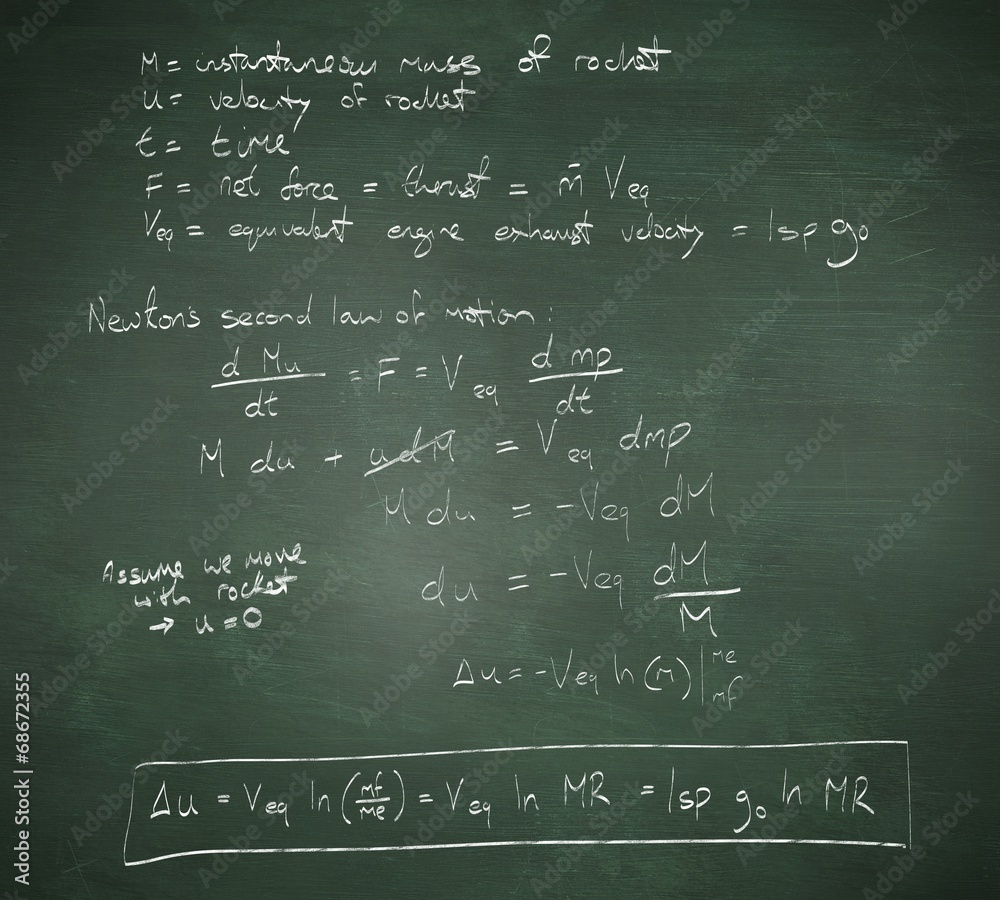 M = instantaneous mass of rocket
u = velocity of rocket
t = time
F = net force = thrust = m̄ Veq
Veq = equivalent engine exhaust velocity = Isp g₀
Newton's second law of motion:
d Mu / dt = F = Veq d mp / dt
M du + u d M = Veq dmp
M du = -Veq dM
Assume we move
with rocket
→ u = 0
du = -Veq dM / M
Δu = -Veq ln (M) | Me mf
Δu = Veq ln (Mf / Me) = Veq ln MR = Isp g₀ ln MR
Adobe Stock | #68672355
Adobe Stock